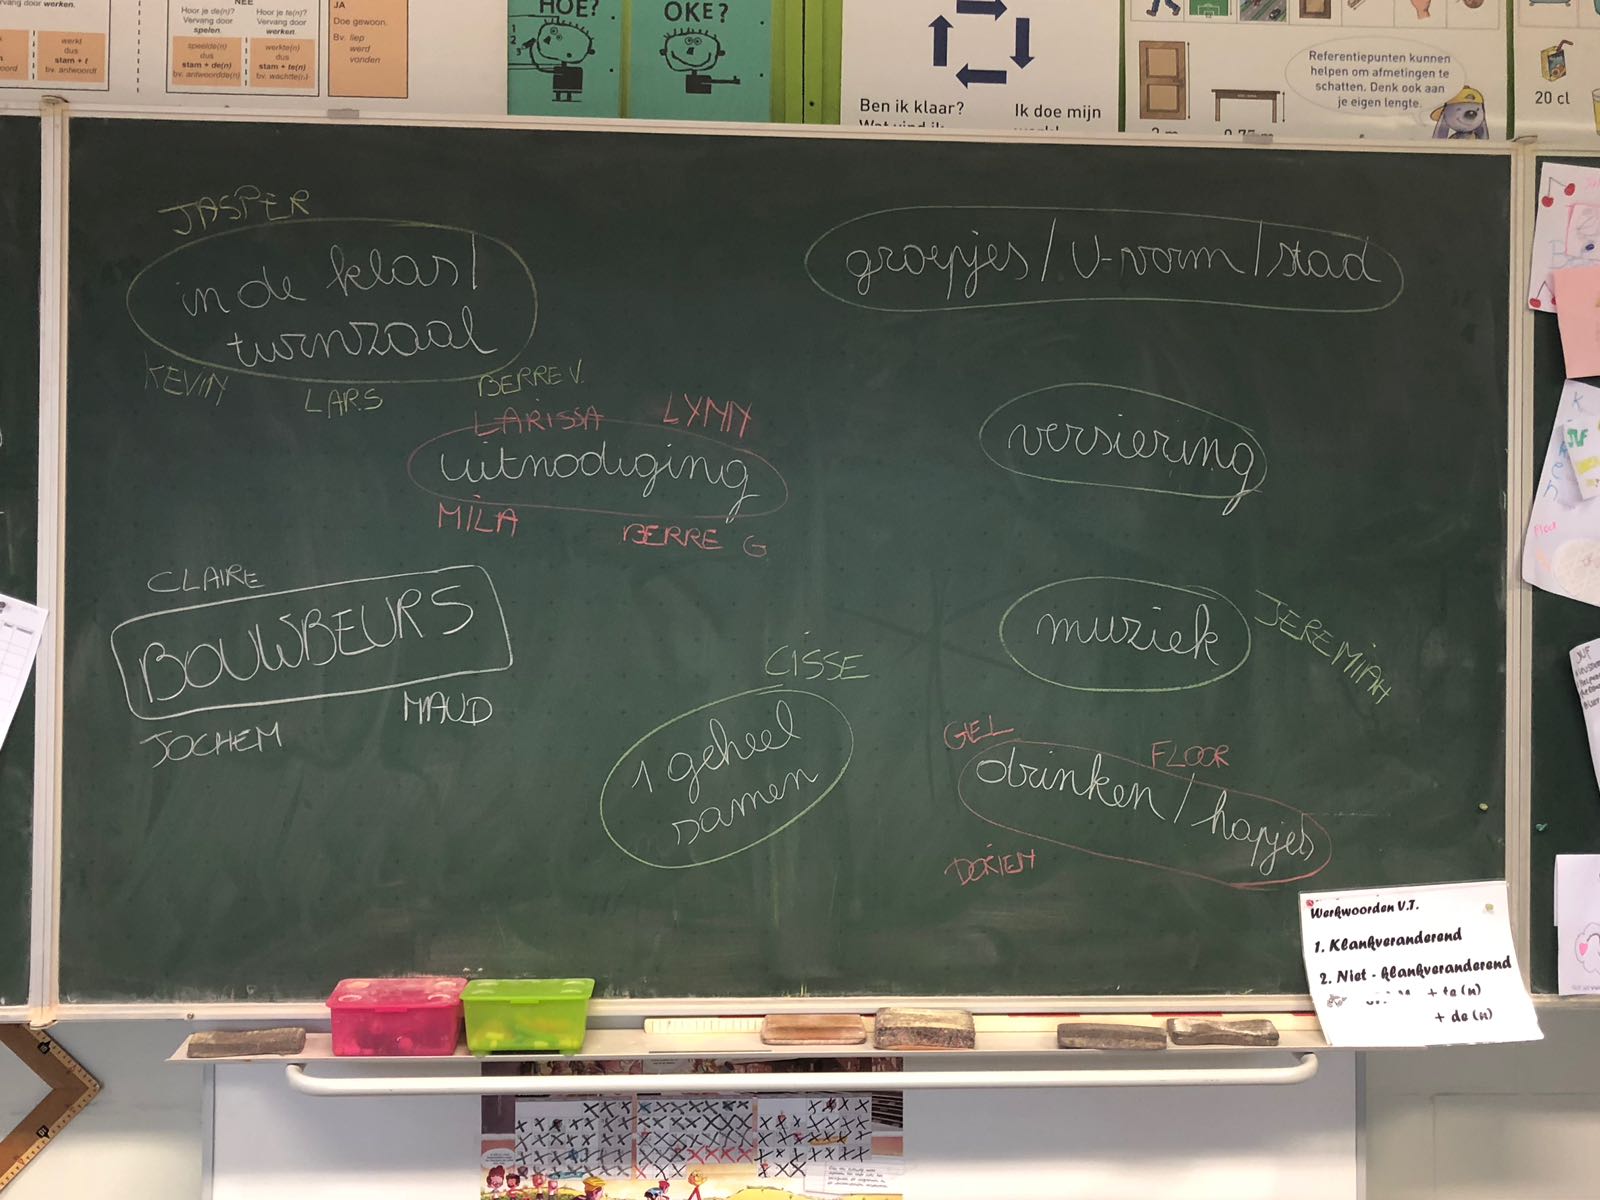 vervang door werken.
werkt
dus
stam + t
bv. antwoordt
NEE
Hoor je de(n)?
Vervang door
spelen.
speelde(n)
dus
stam + de(n)
bv. antwoordde(n)
Hoor je te(n)?
Vervang door
werken.
werkte(n)
dus
stam + te(n)
bv. wachtte(n)
JA
Doe gewoon.
Bv. liep
werd
vonden
HOE?
1
2
3
OKE?
Ben ik klaar?
Ik doe mijn
Referentiepunten kunnen
helpen om afmetingen te
schatten. Denk ook aan
je eigen lengte.
2 m
0,75 m
20 cl
JASPER
in de klas/
turnzaal
KEVIN
LARS
BERRE V.
groepjes/U-vorm/stad
LARISSA
LYNN
uitnodiging
MILA
BERRE G
versiering
CLAIRE
BOUWBEURS
JOCHEM
MAUD
muziek
JEREMIAH
CISSE
1 geheel
samen
GIEL
FLOOR
drinken/hapjes
DORIEN
Werkwoorden V.T.
1. Klankveranderend
2. Niet - klankveranderend
+ te (n)
+ de (n)